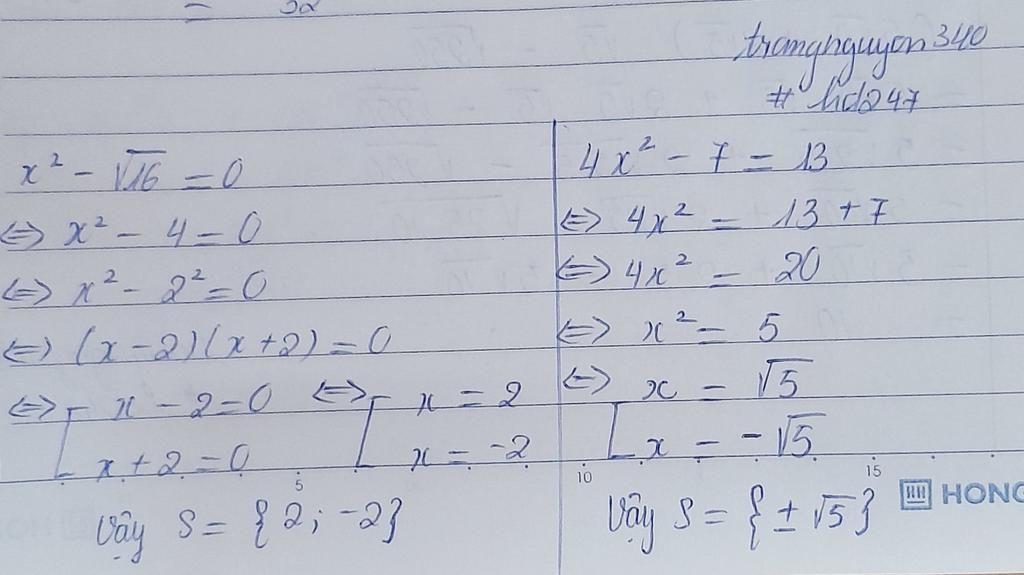 = 32
trangnguyen340
# hd247
x² - √16 = 0
⇔ x² - 4 = 0
⇔ x² - 2² = 0
⇔ (x - 2)(x + 2) = 0
⇔ [ x - 2 = 0 ⇔ [ x = 2
x + 2 = 0 x = -2
5
Vậy S = {2; -2}
4x² - 7 = 13
⇔ 4x² = 13 + 7
⇔ 4x² = 20
⇔ x² = 5
⇔ [ x = √5
x = -√5
10 15
Vậy S = {± √5}
HONG